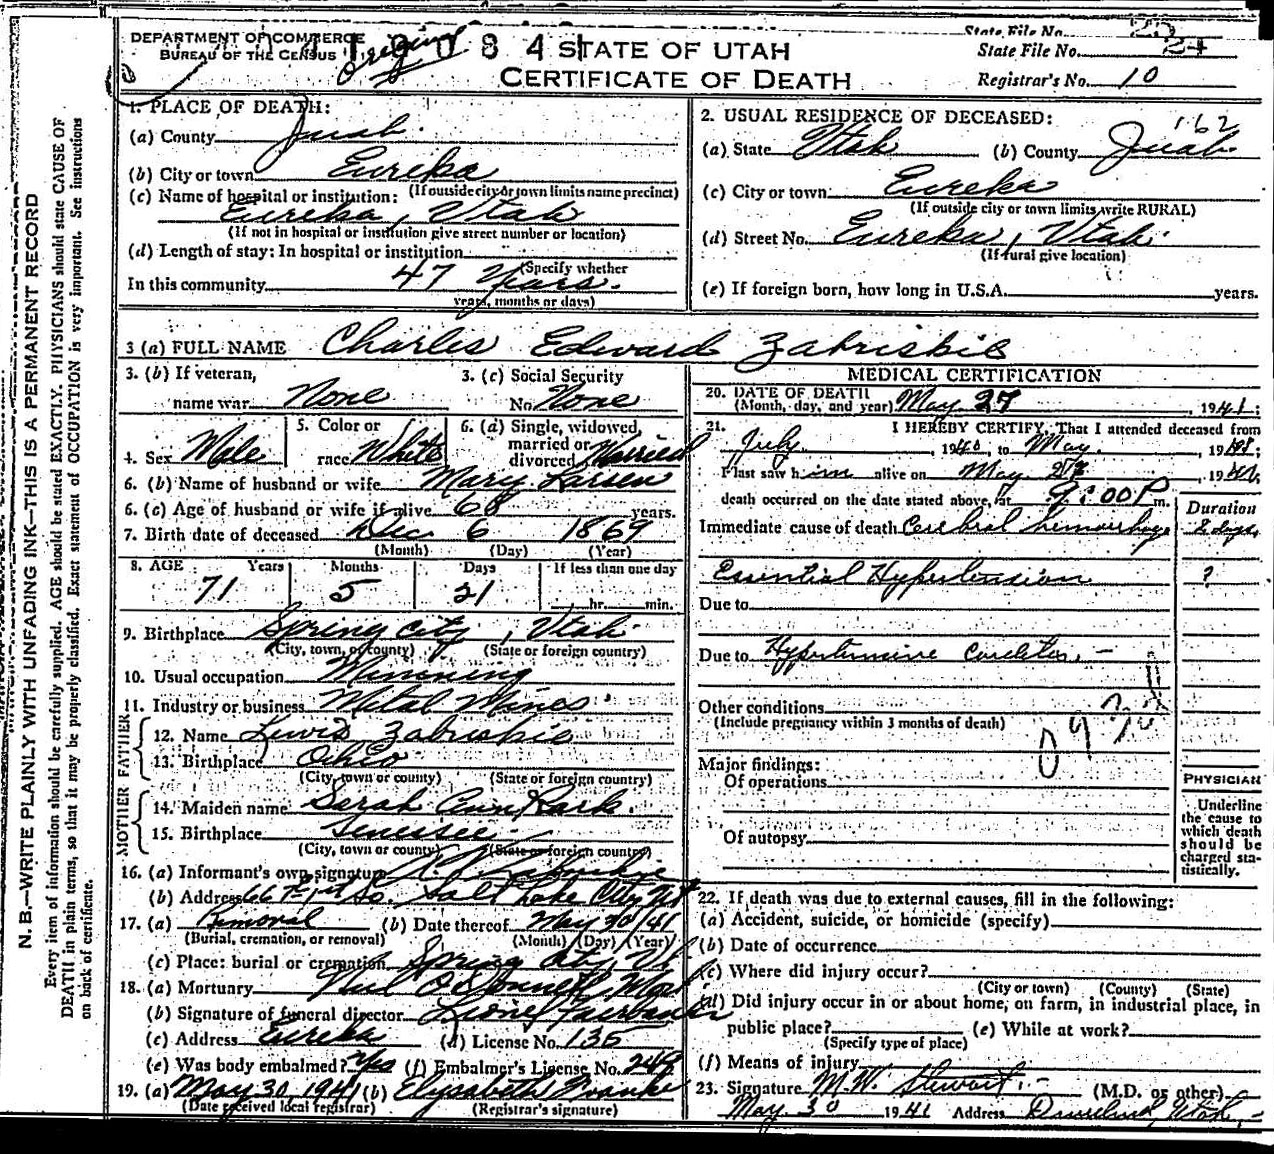 DEPARTMENT OF COMMERCE
BUREAU OF THE CENSUS
Original
STATE OF UTAH
CERTIFICATE OF DEATH
State File No.
State File No. 24
Registrar's No. 10
N. B.—WRITE PLAINLY WITH UNFADING INK—THIS IS A PERMANENT RECORD
Every item of information should be carefully supplied. AGE should be stated EXACTLY. PHYSICIANS should state CAUSE OF
DEATH in plain terms, so that it may be properly classified. Exact statement of OCCUPATION is very important. See instructions
on back of certificate.
1. PLACE OF DEATH:
(a) County Juab
(b) City or town Eureka
(If outside city or town limits name precinct)
(c) Name of hospital or institution:
Eureka, Utah
(If not in hospital or institution give street number or location)
(d) Length of stay: In hospital or institution
(Specify whether
In this community 47 Years.
years, months or days)
2. USUAL RESIDENCE OF DECEASED:
162
(a) State Utah (b) County Juab
(c) City or town Eureka
(If outside city or town limits write RURAL)
(d) Street No. Eureka, Utah
(If rural give location)
(e) If foreign born, how long in U.S.A. years.
3 (a) FULL NAME Charles Edward Zabriskie
3. (b) If veteran,
name war None
3. (c) Social Security
No. None
4. Sex Male
5. Color or
race White
6. (a) Single, widowed,
married or
divorced Married
6. (b) Name of husband or wife Mary Larsen
6. (c) Age of husband or wife if alive 68 years.
7. Birth date of deceased Dec 6 1869
(Month) (Day) (Year)
8. AGE Years Months Days If less than one day
71 5 21 hr. min.
9. Birthplace Spring City, Utah
(City, town, or county) (State or foreign country)
10. Usual occupation Minning
11. Industry or business Metal Mines
FATHER
12. Name Lewis Zabriskie
13. Birthplace Ohio
(City, town or county) (State or foreign country)
MOTHER
14. Maiden name Sarah Ann
15. Birthplace
(City, town or county) (State or foreign country)
16. (a) Informant's own signature
(b) Address So. Salt Lake City Ut
17. (a) Removal (b) Date thereof May 30/41
(Burial, cremation, or removal) (Month) (Day) (Year)
(c) Place: burial or cremation Spring City, Ut.
18. (a) Mortuary O'Donnell
(b) Signature of funeral director Lionel Fairbanks
(c) Address Eureka (d) License No. 135
(e) Was body embalmed? Yes (f) Embalmer's License No. 249
19. (a) May 30, 1941 (b) Elysabeth Franke
(Date received local registrar) (Registrar's signature)
MEDICAL CERTIFICATION
20. DATE OF DEATH
(Month, day, and year) May 27, 1941;
21. I HEREBY CERTIFY, That I attended deceased from
July, 1940, to May, 1941;
I last saw him alive on May 27, 1941;
death occurred on the date stated above, at 9:00 P m.
Duration
Immediate cause of death Cerebral hemorrhage 2 days
Essential Hypertension ?
Due to
Due to Hypertensive
Other conditions
(Include pregnancy within 3 months of death)
Major findings:
Of operations
Of autopsy
PHYSICIAN
Underline
the cause to
which death
should be
charged sta-
tistically.
22. If death was due to external causes, fill in the following:
(a) Accident, suicide, or homicide (specify)
(b) Date of occurrence
(c) Where did injury occur?
(City or town) (County) (State)
(d) Did injury occur in or about home, on farm, in industrial place, in
public place? (e) While at work?
(Specify type of place)
(f) Means of injury
23. Signature M. W. Stewart (M.D. or other)
May 30 1941 Address Utah